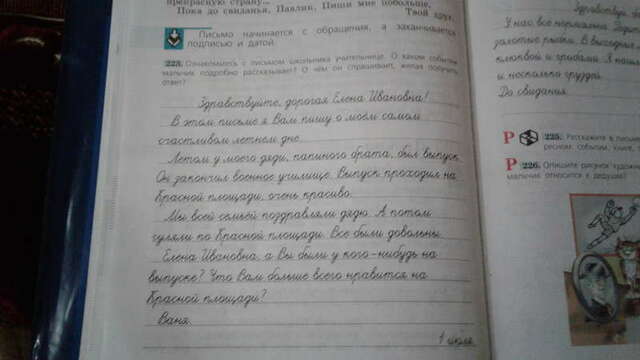 прекрасную страну...
Пока до свиданья, Павлик. Пиши мне побольше.
Твой друг.
Письмо начинается с обращения, а заканчивается
подписью и датой.
223. Ознакомьтесь с письмом школьника учительнице. О каком событии
мальчик подробно рассказывает? О чём он спрашивает, желая получить
ответ?
Здравствуйте, дорогая Елена Ивановна!
В этом письме я Вам пишу о моём самом
счастливом летнем дне.
Летом у моего дяди, папиного брата, был выпуск.
Он закончил военное училище. Выпуск проходил на
Красной площади, очень красиво.
Мы всей семьёй поздравляли дядю. А потом
гуляли по Красной площади. Все были довольны.
Елена Ивановна, а Вы были у кого-нибудь на
выпуске? Что Вам больше всего нравится на
Красной площади?
Ваня.
1 июля
Здравствуй
У нас всё нормально.
золотые рыбки. В выходные
клюквой и грибами. Я нашл
и несколько груздей.
До свидания.
Р 225. Расскажите в письме
ресном событии, книге,
Р 226. Опишите рисунок художни
мальчик относится к дедушке?